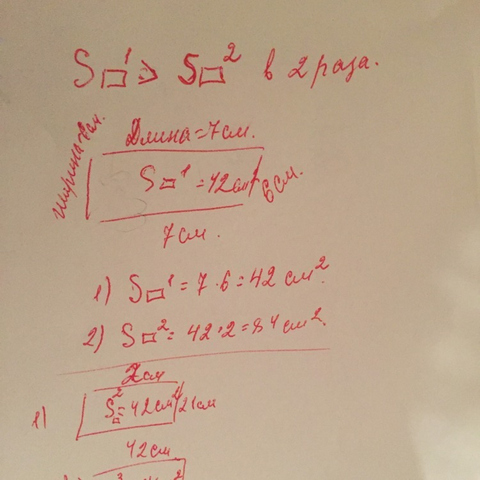 S▭¹ > S▭² в 2 раза.
Длина = 7 см.
S▭¹ = 42 см²
6 см.
7 см.
1) S▭¹ = 7 · 6 = 42 см².
2) S▭² = 42 · 2 = 84 см².
2 см
1) S▭² = 42 см² 21 см
42 см